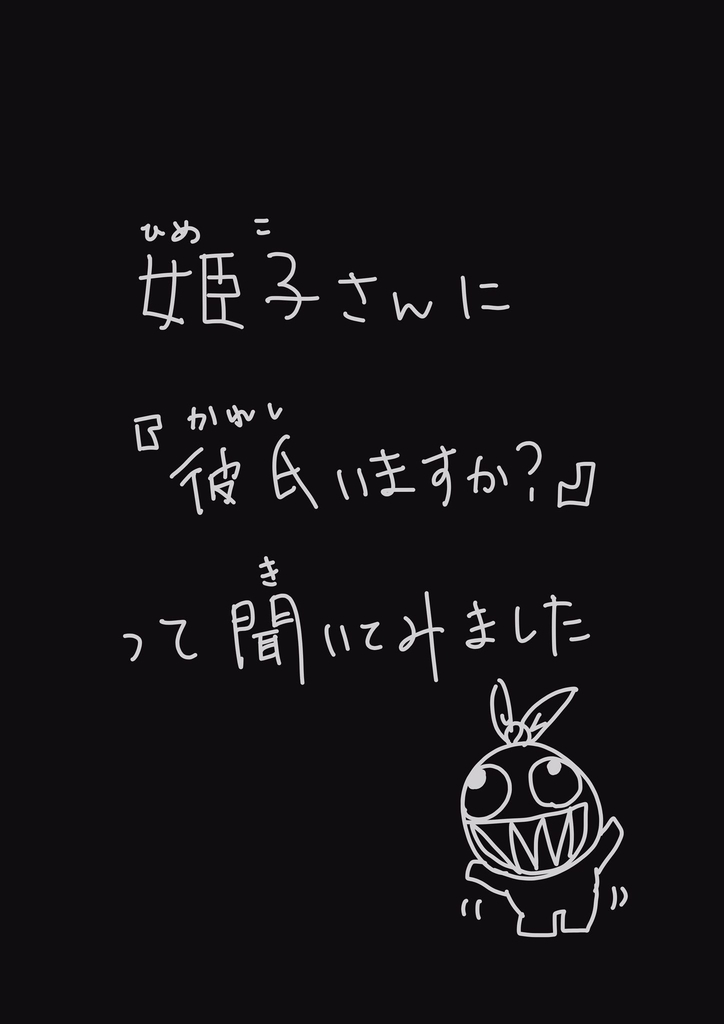 ひめ こ
姫子さんに
かれし
『彼氏いますか?』
き
って聞いてみました